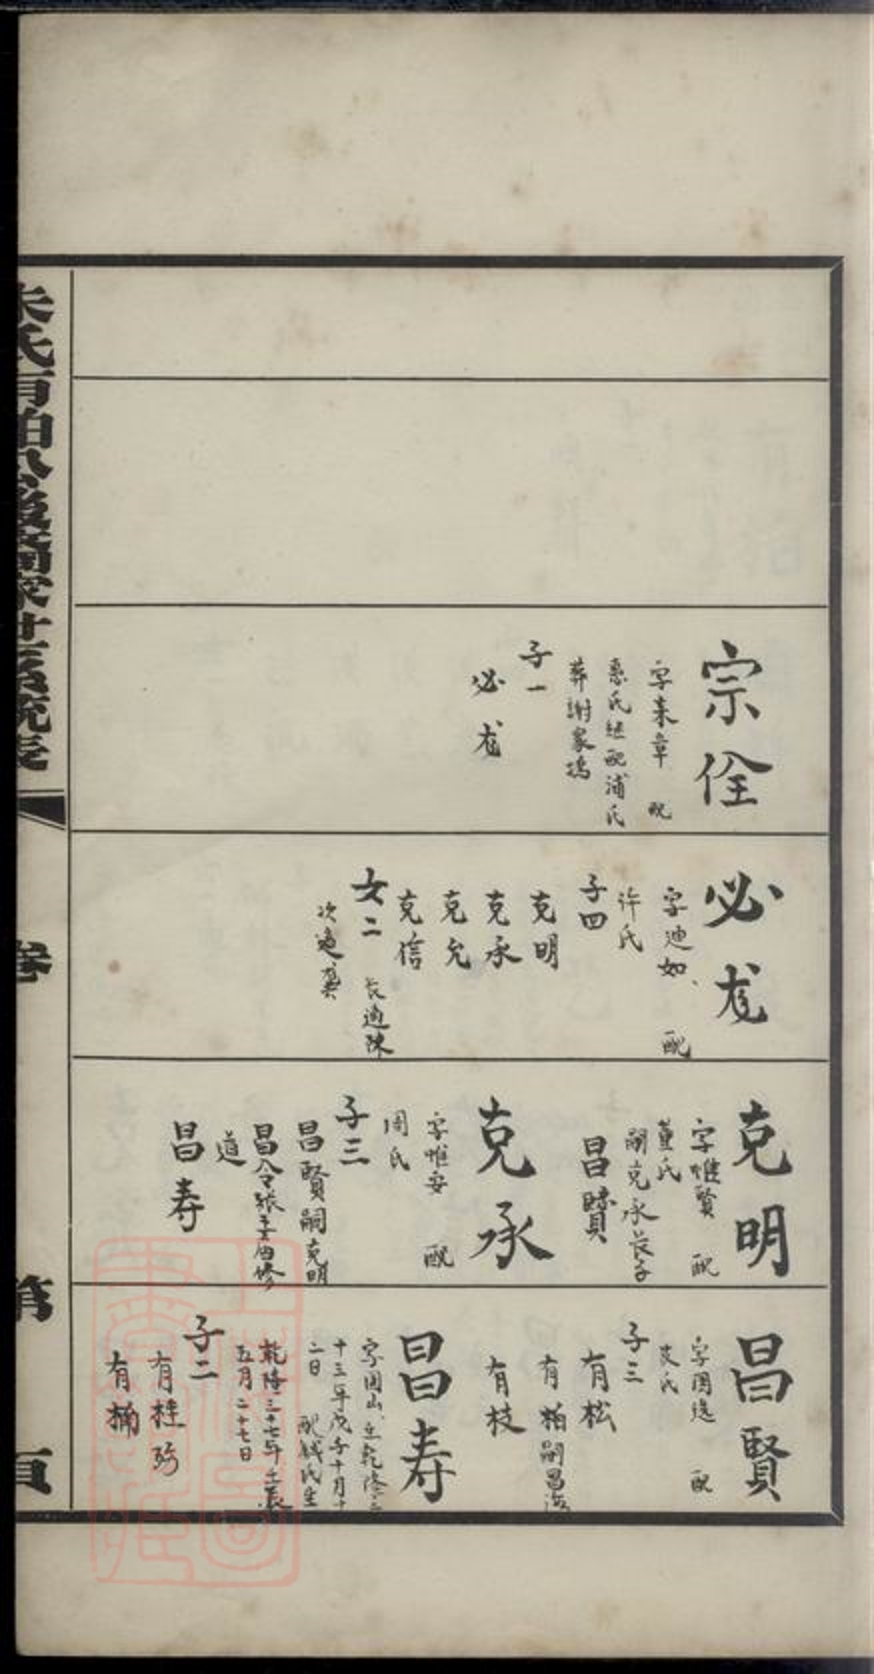 宗佺
字来章 配
惠氏継配浦氏
葬謝家塢
子一
必尨
必尨
字廸如、 配
许氏
子四
克明
克承
克允
克信
女二 长適陳
次適龔
克明
字惟賢 配
董氏
嗣克承长子
昌賢
克承
字惟安 配
周氏
子三
昌賢嗣克明
昌令張
道
昌寿
昌賢
配
子三
有松
有柏嗣昌
有枝
昌寿
字 山 生乾隆三
十三年戊子十月十
二日 配錢氏生
乾隆三十七年壬辰
五月二十七日
子二
有桂
有楠
卷
第
頁